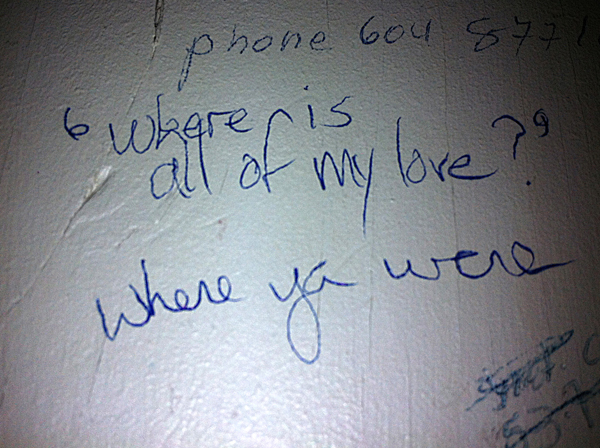 phone 604 8771
'where is
all of my love?'
where ya were